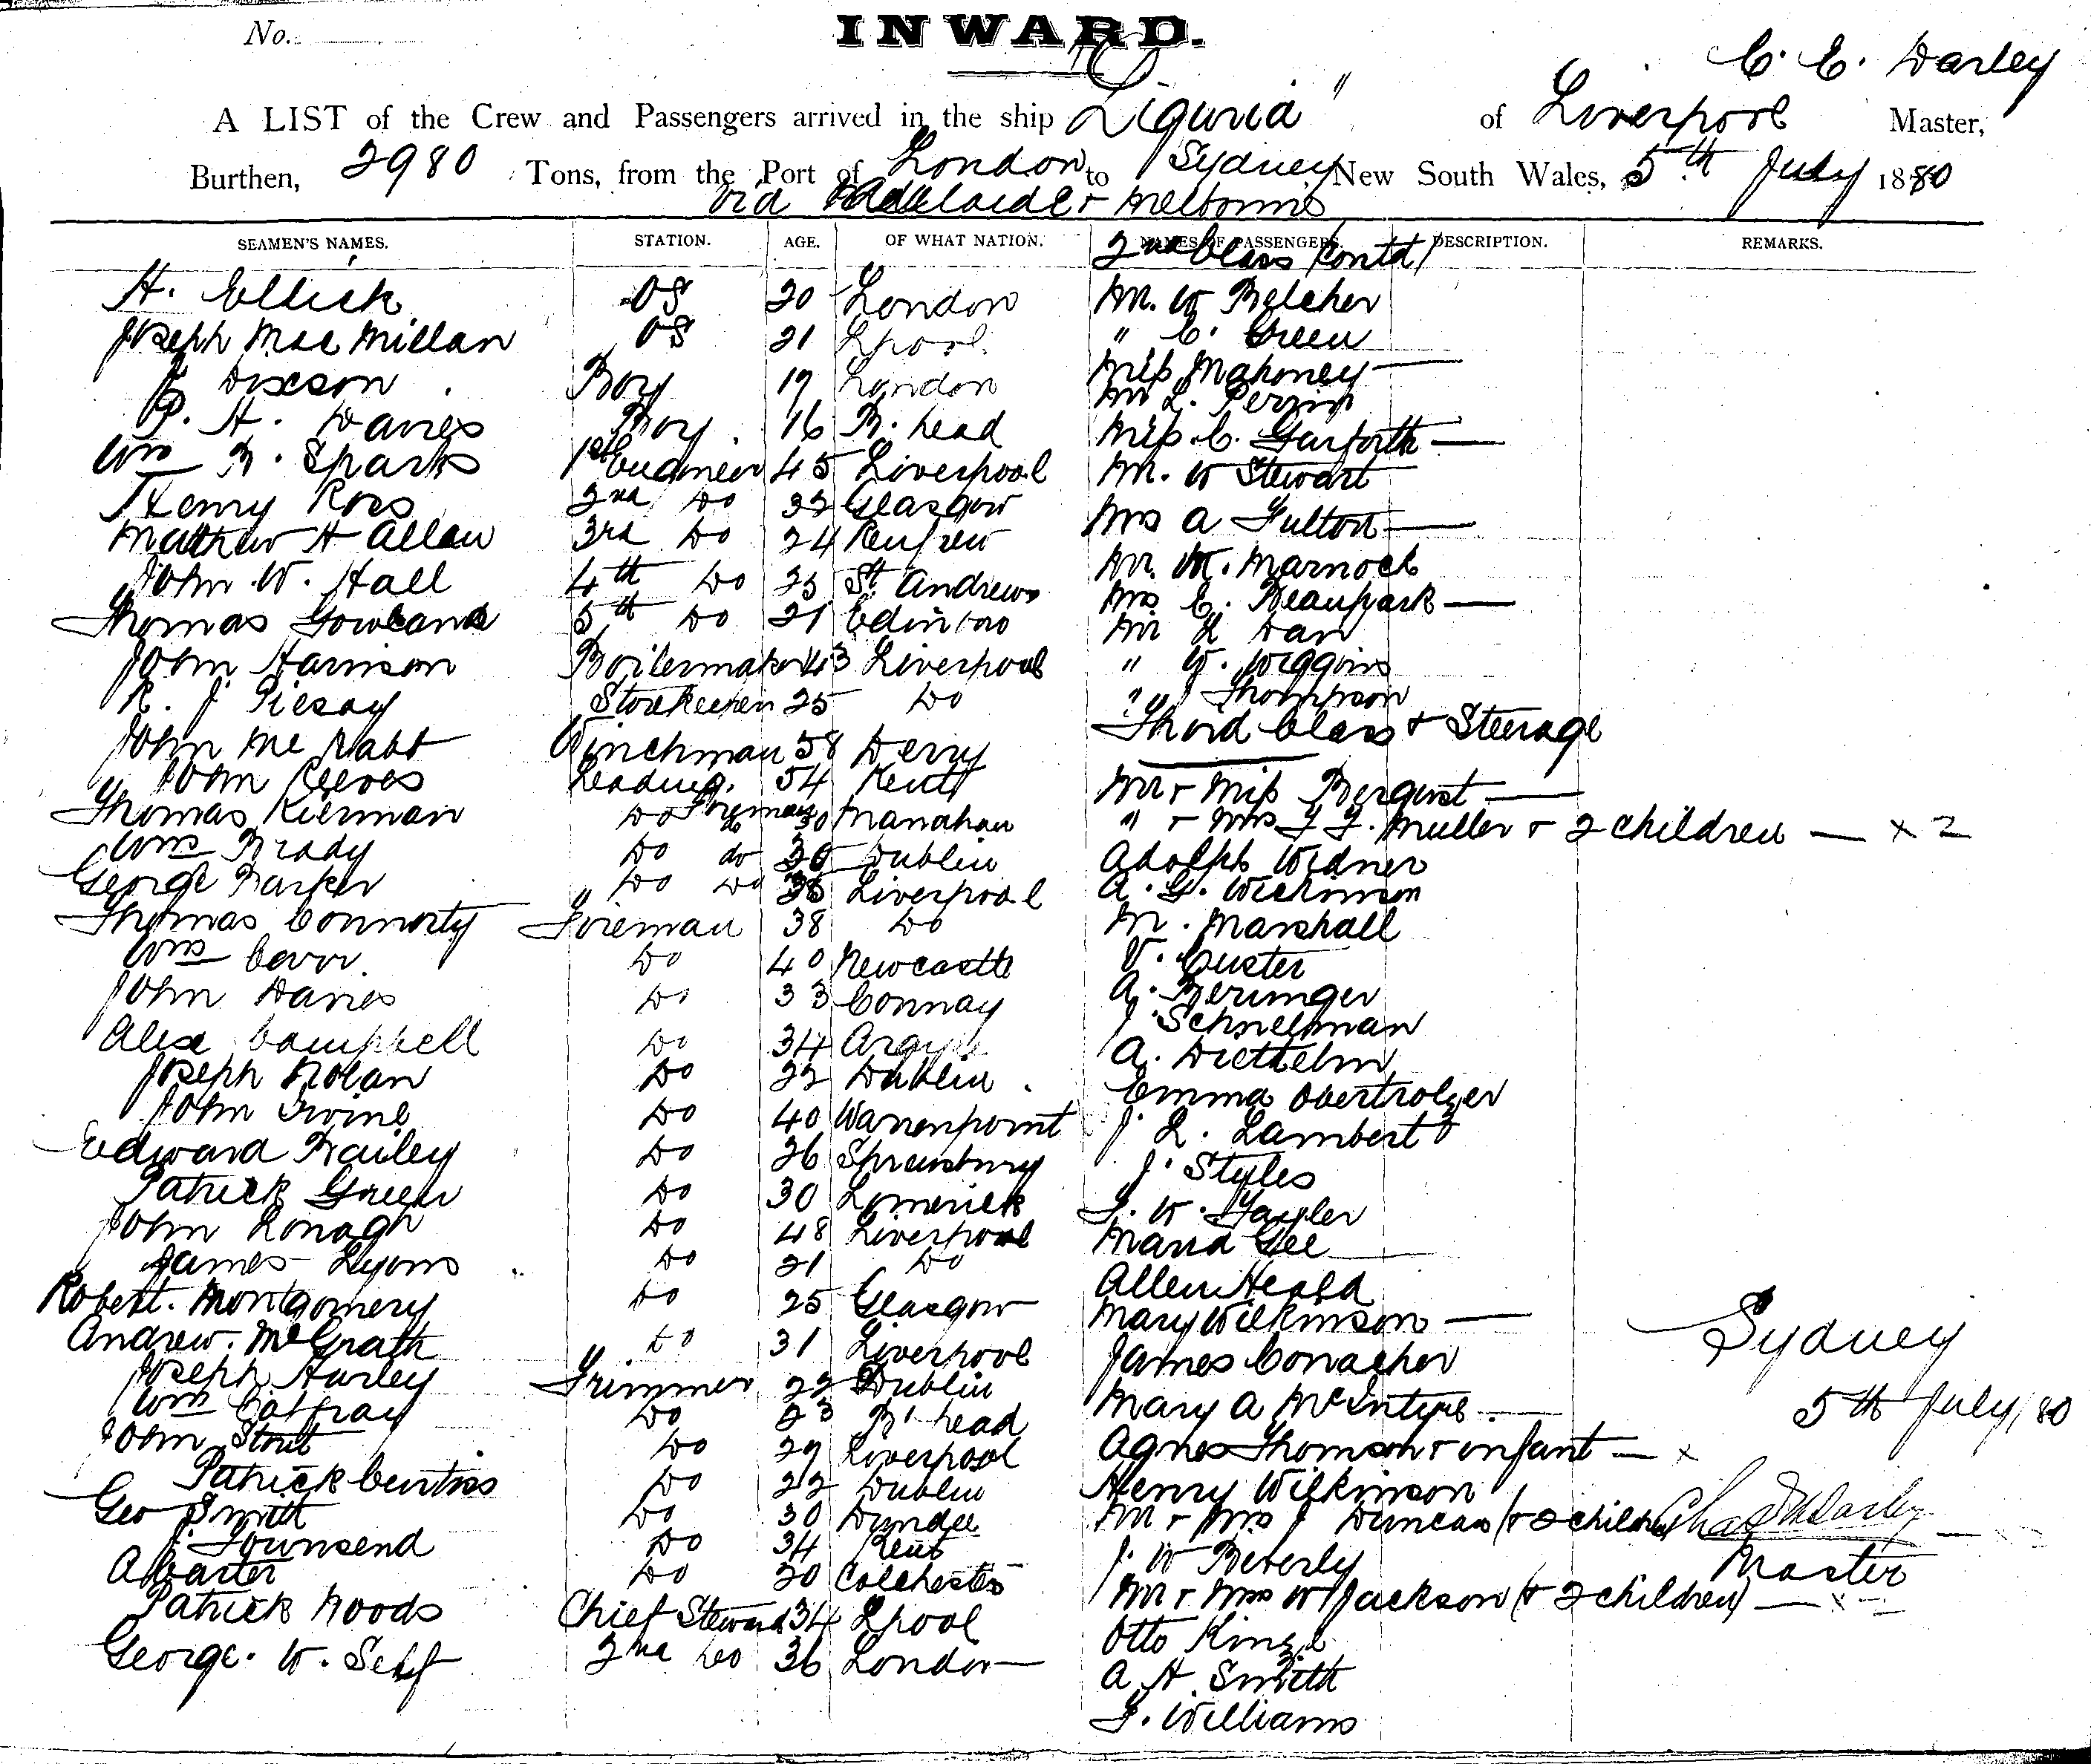 No.
INWARD.
C. E. Darley
A LIST of the Crew and Passengers arrived in the ship "Liguria" of Liverpool Master,
Burthen, 2980 Tons, from the Port of London to Sydney, New South Wales, 5th July 1880
via Adelaide & Melbourne
SEAMEN'S NAMES. STATION. AGE. OF WHAT NATION. NAMES OF PASSENGERS. DESCRIPTION. REMARKS.
2nd Class (contd)
H. Ellick OS 20 London Mr. W Belcher
Joseph Mac Millan OS 21 Lpool " C. Green
Dixson Boy 17 London Miss Mahoney —
P. H. Davies Boy 16 B. head Mr L. Perrin
Wm R. Sparks 1st Engineer 45 Liverpool Miss C. Garforth —
Henry Ross 2nd Do 32 Glasgow Mr. W Stewart
Mathew H Allan 3rd Do 24 Renfrew Mrs A Fulton —
John W. Hall 4th Do 25 St. Andrews Mr. M. Marnock
Thomas Gowland 5th Do 21 Edinboro Mrs E. Beaupark —
John Harrison Boilermaker 43 Liverpool Mr Dan
R. J. Piesay Storekeeper 25 Do " W. Wiggins
John Mc Nabb Winchman 58 Derry " J Thompson
Third Class & Steerage
John Reeves Leading Fireman 54 Kent Mr & Miss Berquist —
Thomas Kiernan Do do 30 Manahan " & Mrs F F. Muller & 2 children — x 2
Wm Brady Do do 30 Dublin Adolph Widner
George Barker Do Do 38 Liverpool A. G. Wickinson
Thomas Connorty Fireman 38 Do M. Marshall
Wm Carr Do 40 Newcastle V. Custer
John Davies Do 33 Connay A. Beringer
Alex Campbell Do 34 Argyle J. Schnellman
Joseph Nolan Do 22 Dublin A. Diethelm
John Irvine Do 40 Warrenpoint Emma Obertrolzer
Edward Bailey Do 26 Shrewsbury J. L. Lambert
Patrick Green Do 30 Limerick J. Styles
John Konagh Do 48 Liverpool F. W. Gayler
James Lyons Do 21 Do Maria Gee
Robert. Montgomery Do 25 Glasgow Allen Heald
Andrew. McGrath Do 31 Liverpool Mary Wilkinson —
Joseph Hurley Trimmer 22 Dublin James Conacher
Wm Caffray Do 23 B'head Mary A McIntyre. —
John Stout Do 29 Liverpool Agnes Thomson & infant — x
Patrick Curtiss Do 22 Dublin Henry Wilkinson
Geo Smith Do 30 Dundee Mr & Mrs J Duncan (& 2 children) —
J. Townsend Do 34 Kent J. W Beverly
A Carter Do 20 Colchester Mr & Mrs W Jackson (& 2 children) — x
Patrick Woods Chief Steward 34 Lpool Otto Kinzel
George. W. Self 2nd Do 36 London A. H. Smith
F. Williams
Sydney
5th July/80
Chas E Darley
Master